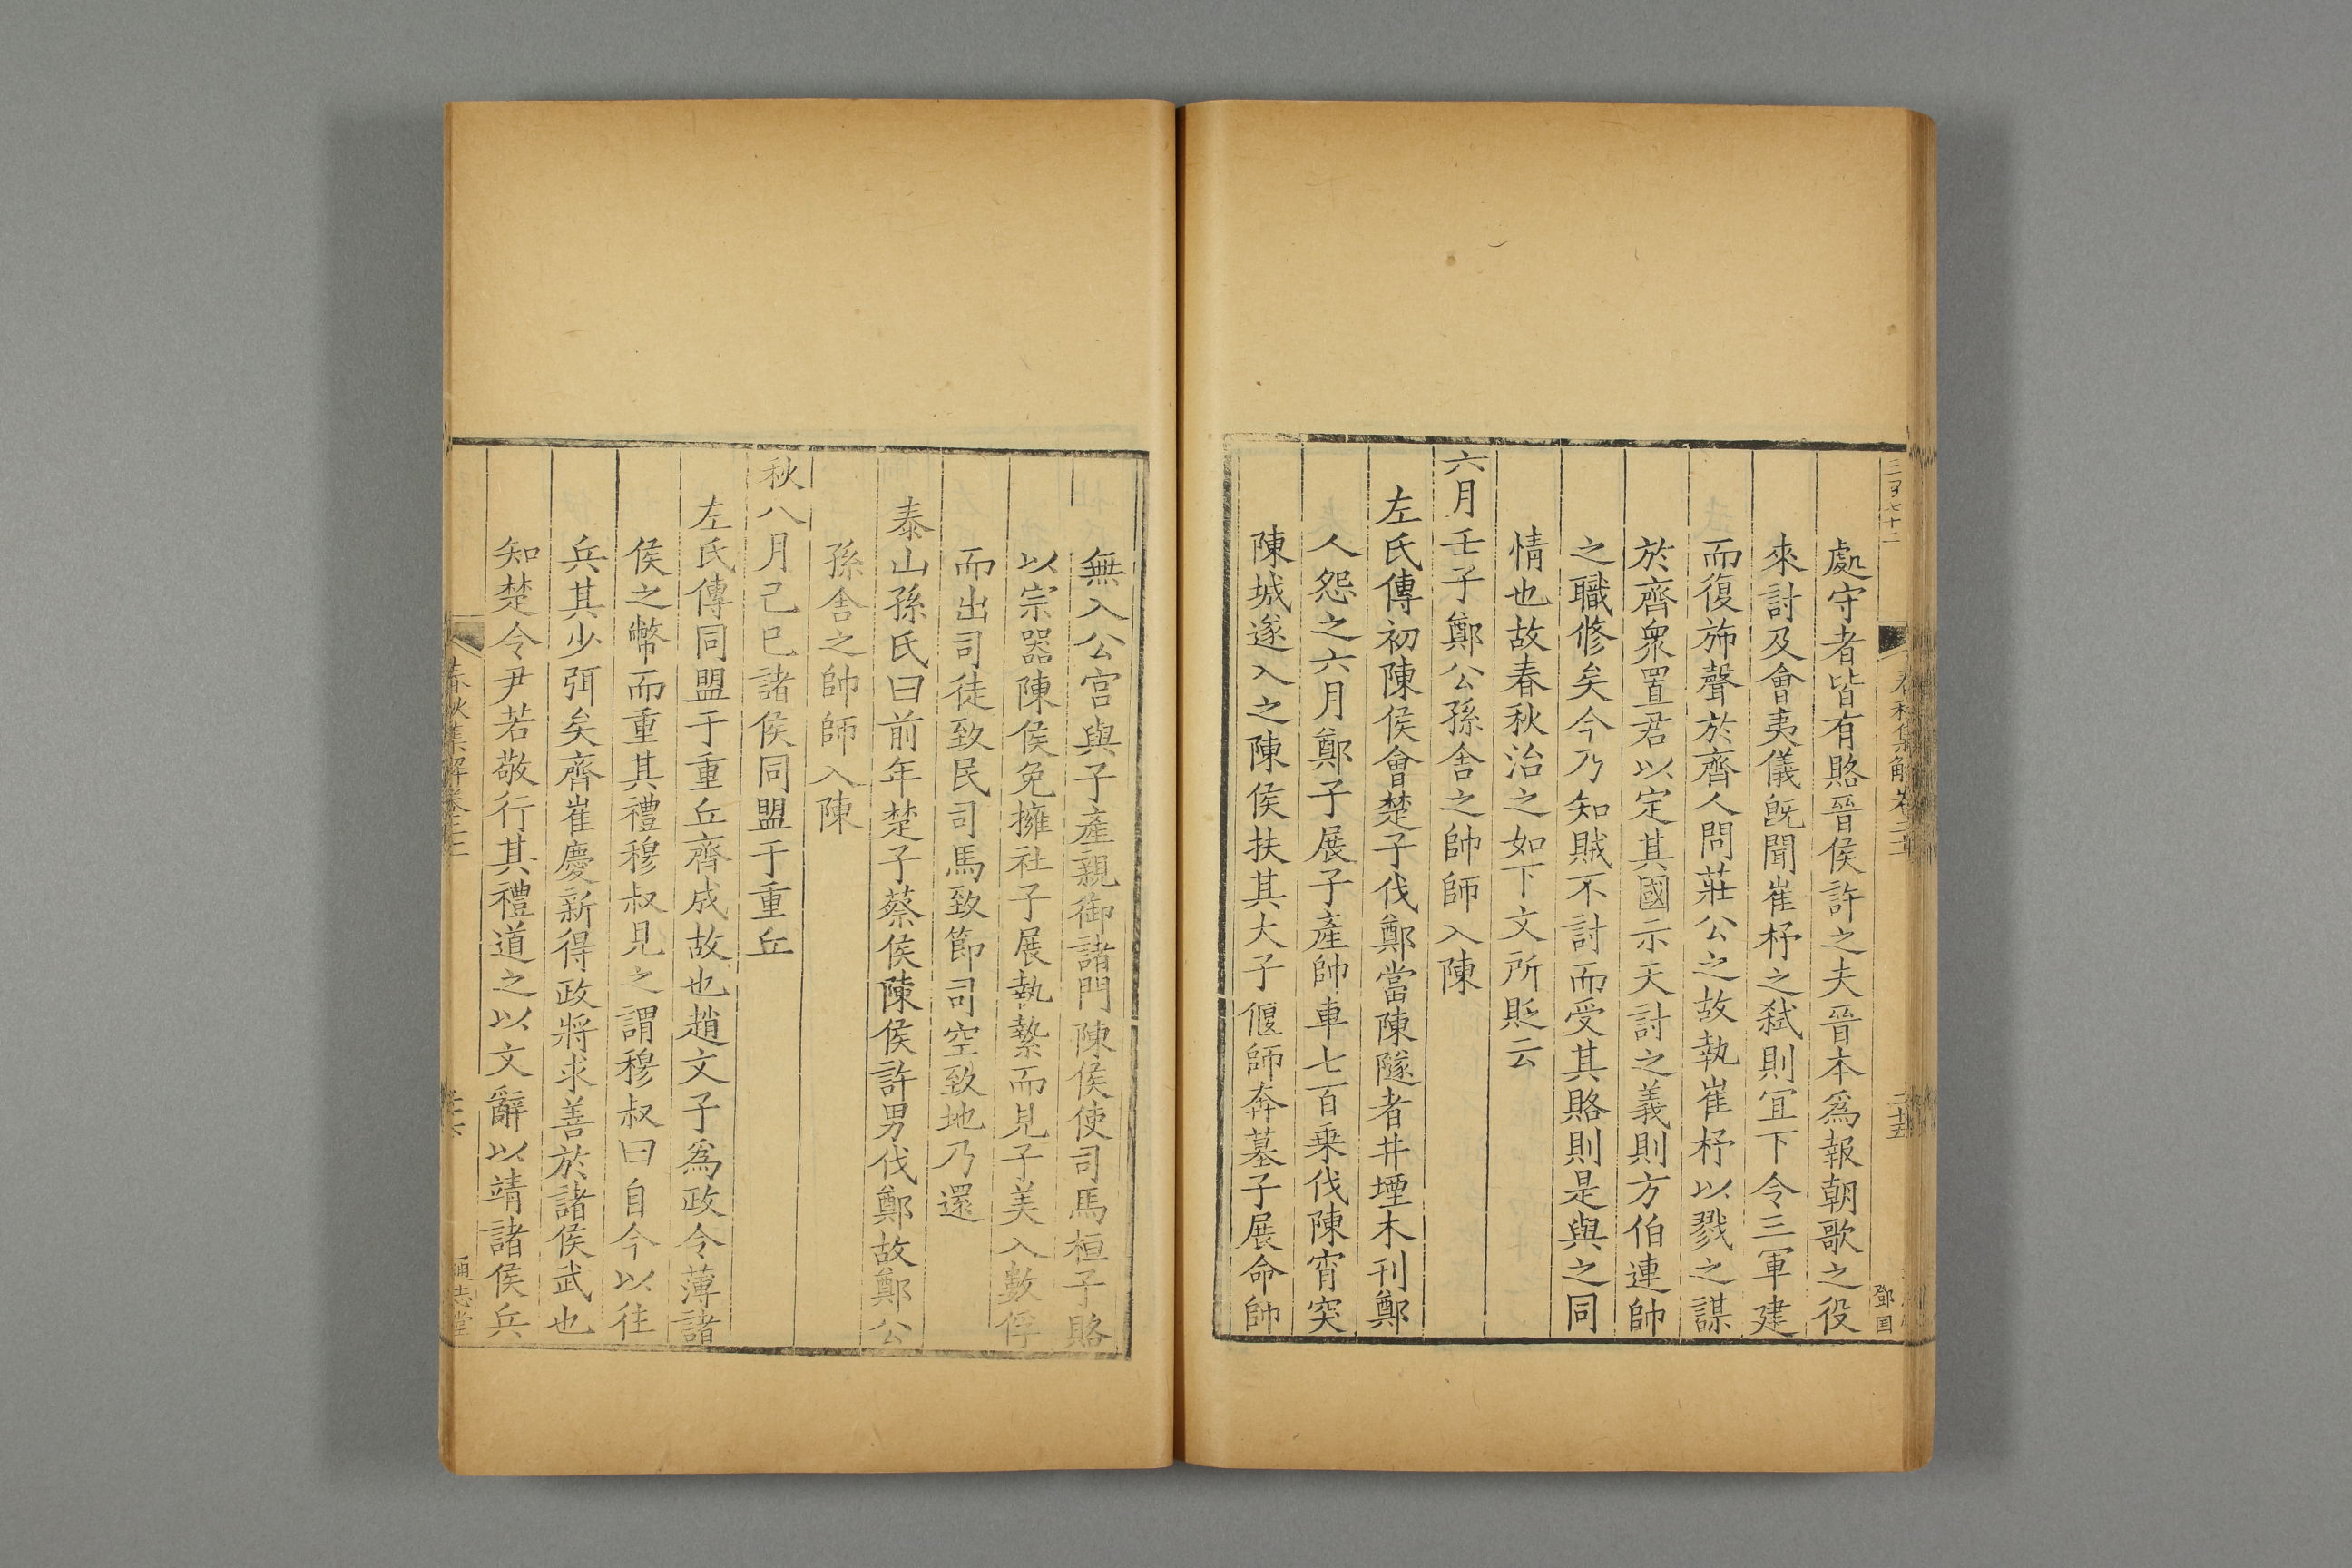 處守者皆有賂晉侯許之夫晉本爲報朝歌之役
來討及會夷儀旣聞崔杼之弑則宜下令三軍建
而復斾聲於齊人問莊公之故執崔杼以戮之謀
於齊衆置君以定其國示天討之義則方伯連帥
之職修矣今乃知賊不討而受其賂則是與之同
情也故春秋治之如下文所貶云
六月壬子鄭公孫舍之帥師入陳
左氏傳初陳侯會楚子伐鄭當陳隧者井堙木刊鄭
人怨之六月鄭子展子產帥車七百乗伐陳宵突
陳城遂入之陳侯扶其大子偃師奔墓子展命帥
無入公宮與子產親御諸門陳侯使司馬桓子賂
以宗器陳侯免擁社子展執縶而見子美入數俘
而出司徒致民司馬致節司空致地乃還
泰山孫氏曰前年楚子蔡侯陳侯許男伐鄭故鄭公
孫舍之帥師入陳
秋八月己巳諸侯同盟于重丘
左氏傳同盟于重丘齊成故也趙文子爲政令薄諸
侯之幣而重其禮穆叔見之謂穆叔曰自今以往
兵其少弭矣齊崔慶新得政將求善於諸侯武也
知楚令尹若敬行其禮道之以文辭以靖諸侯兵
春秋集解卷二十二
通志堂